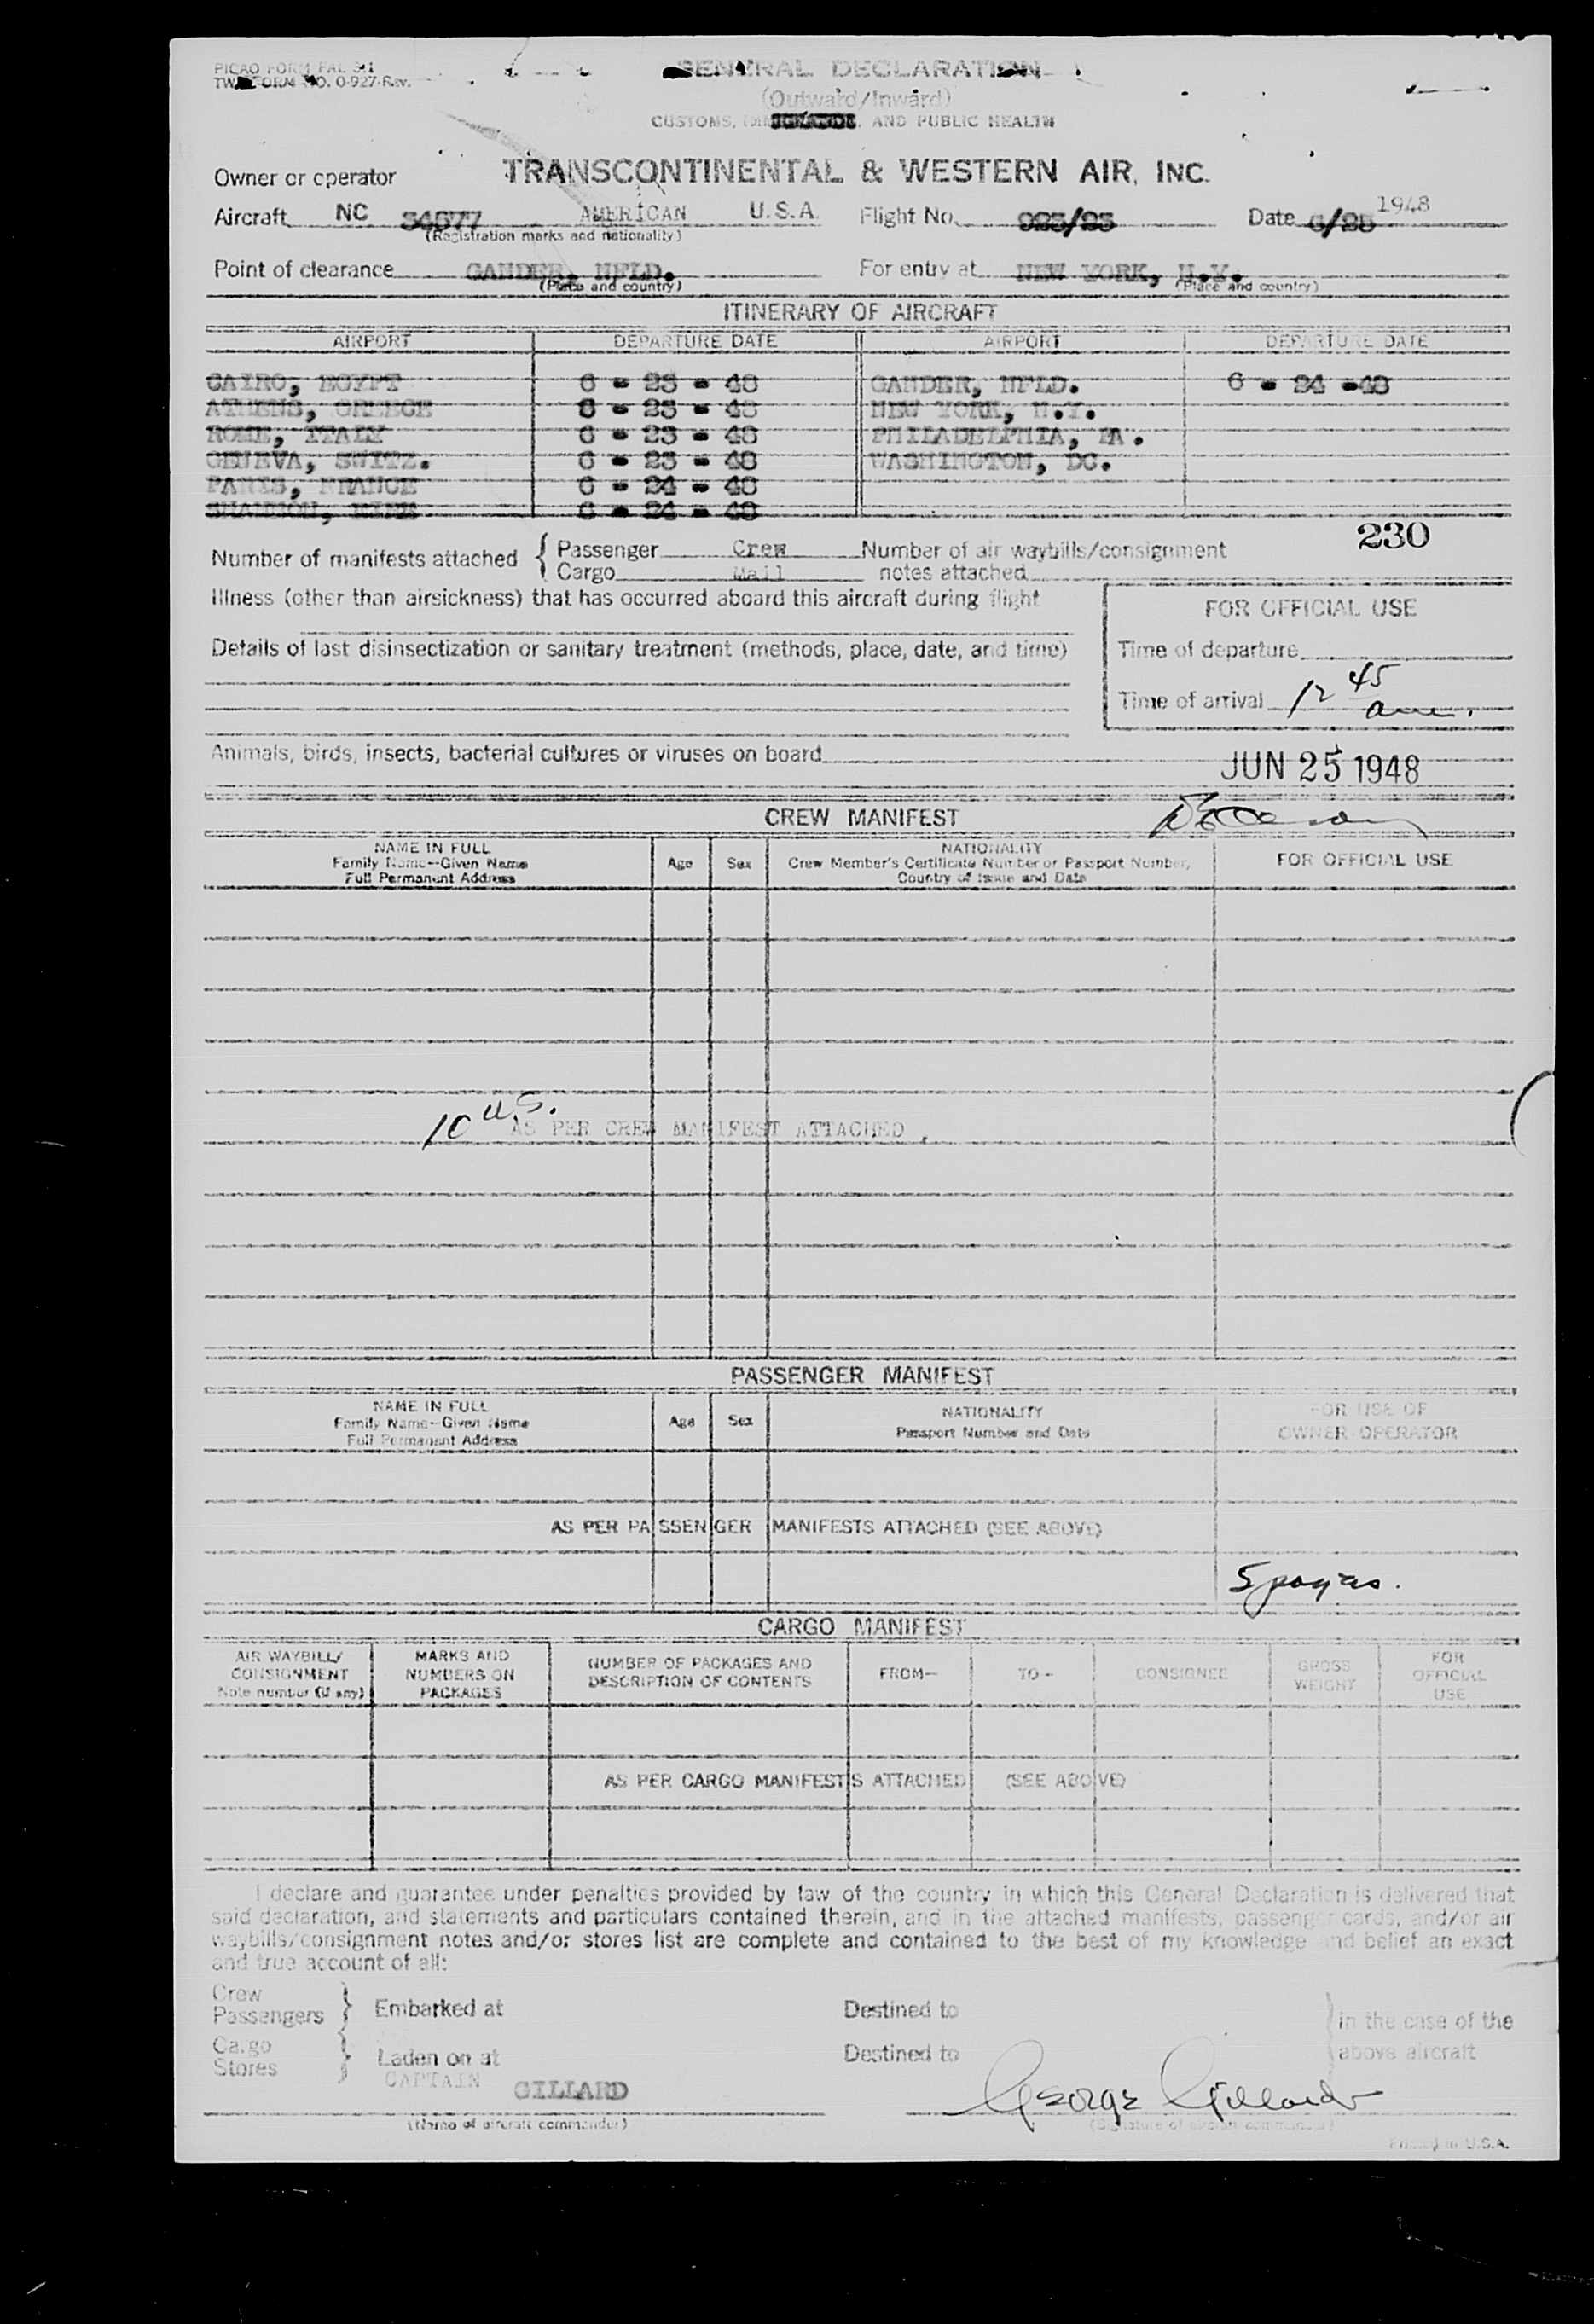 PICAO FORM FAL 3-1
TWA FORM NO. 0-927-Rev.
GENERAL DECLARATION
(Outward/Inward)
CUSTOMS, AND PUBLIC HEALTH
Owner or operator TRANSCONTINENTAL & WESTERN AIR, INC.
Aircraft NC 34577 AMERICAN U.S.A. Flight No. 923/23 Date 6/25 1948
(Registration marks and nationality)
Point of clearance GANDER, NFLD. For entry at NEW YORK, N.Y.
(Place and country) (Place and country)
ITINERARY OF AIRCRAFT
AIRPORT DEPARTURE DATE AIRPORT DEPARTURE DATE
CAIRO, EGYPT 6 - 23 - 48 GANDER, NFLD. 6 - 24 -48
ATHENS, GREECE 6 - 23 - 48 NEW YORK, N.Y.
ROME, ITALY 6 - 23 - 48 PHILADELPHIA, PA.
GENEVA, SWITZ. 6 - 23 - 48 WASHINGTON, DC.
PARIS, FRANCE 6 - 24 - 48
SHANNON, EIRE 6 - 24 - 48
230
Number of manifests attached { Passenger Crew Number of air waybills/consignment
Cargo Mail notes attached
Illness (other than airsickness) that has occurred aboard this aircraft during flight
FOR OFFICIAL USE
Details of last disinsectization or sanitary treatment (methods, place, date, and time)
Time of departure
Time of arrival 12 45 am.
Animals, birds, insects, bacterial cultures or viruses on board
JUN 25 1948
CREW MANIFEST
NAME IN FULL
Family Name—Given Name
Full Permanent Address
Age Sex
NATIONALITY
Crew Member's Certificate Number or Passport Number,
Country of Issue and Date
FOR OFFICIAL USE
10 U.S.
AS PER CREW MANIFEST ATTACHED.
PASSENGER MANIFEST
NAME IN FULL
Family Name—Given Name
Full Permanent Address
Age Sex
NATIONALITY
Passport Number and Date
FOR USE OF
OWNER-OPERATOR
AS PER PASSENGER MANIFESTS ATTACHED (SEE ABOVE)
5 pages.
CARGO MANIFEST
AIR WAYBILL/
CONSIGNMENT
Note number (if any)
MARKS AND
NUMBERS ON
PACKAGES
NUMBER OF PACKAGES AND
DESCRIPTION OF CONTENTS
FROM—
TO—
CONSIGNEE
GROSS
WEIGHT
FOR
OFFICIAL
USE
AS PER CARGO MANIFESTS ATTACHED (SEE ABOVE)
I declare and guarantee under penalties provided by law of the country in which this General Declaration is delivered that
said declaration, and statements and particulars contained therein, and in the attached manifests, passenger cards, and/or air
waybills/consignment notes and/or stores list are complete and contained to the best of my knowledge and belief an exact
and true account of all:
Crew
Passengers } Embarked at Destined to
Cargo
Stores } Laden on at Destined to
in the case of the
above aircraft
CAPTAIN GILLARD George Gillard
(Name of aircraft commander) (Signature of aircraft commander)
Printed in U.S.A.